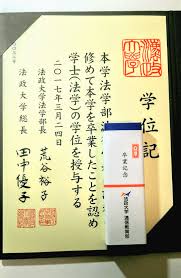 学位記
本学法学部
修めて本学を卒業したことを認め
学士(法学)の学位を授与する
二〇一七年三月二四日
法政大学法学部長
荒谷裕子
法政大学総長
田中優子
卒業記念
法政大学 通信教育部